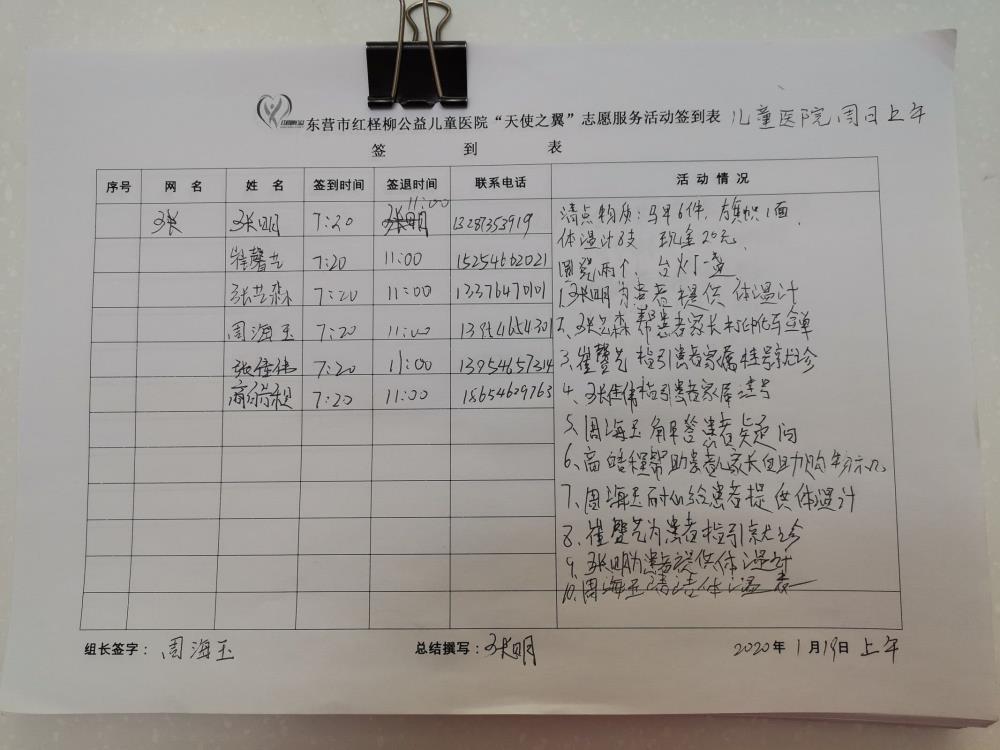 东营市红柽柳公益儿童医院“天使之翼”志愿服务活动签到表 儿童医院周日上午
签 到 表
序号 网 名 姓 名 签到时间 签退时间 联系电话 活 动 情 况
张 张明 7:20 11:00 13287353919
崔馨艺 7:20 11:00 15254662021
张艺森 7:20 11:00 13376470101
周海玉 7:20 11:00
张佳伟 7:20 11:00 13954657314
高皓程 7:20 11:00 18654629763
清点物质:马甲6件,旗帜1面,
体温计8支 现金20元,
两个、台灯一盏
1.张明为患者提供体温计
2、张艺森帮患者家长打印化验单
3、崔馨艺指引患者家属挂号就诊
4、张佳伟指引患者家属
5、周海玉解答患者疑问
6、高皓程帮助患儿家长自助
7、周海玉耐心给患者提供体温计
8、崔馨艺为患者指引就诊
9、张明为患者提供体温计
10、周海玉清洁体温表
组长签字: 周海玉 总结撰写: 张明 2020年1月19日 上午